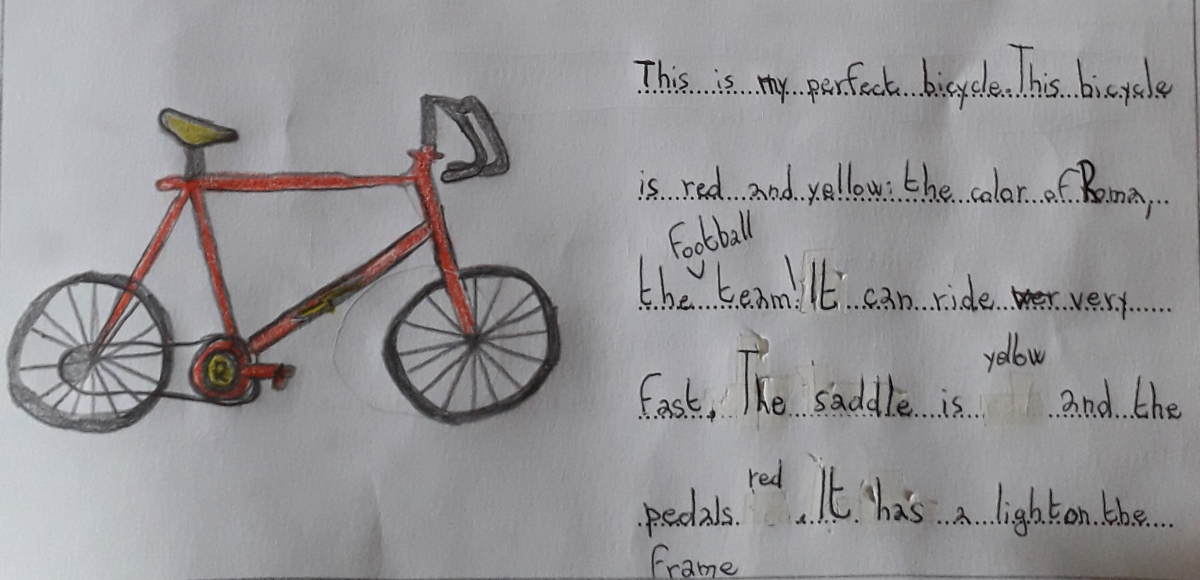 This is my perfect bicycle. This bicycle
is red and yellow: the color of Roma,
the football team! It can ride very
fast. The saddle is yellow and the
pedals red. It has a light on the
frame